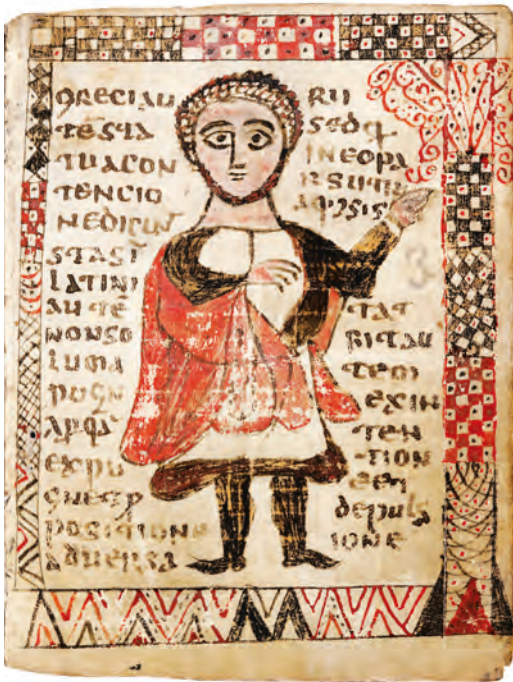 GRECIAU
TESTA
TUACON
TENCIO
NEDICUN̄
STASĪ
LATINI
AUTĒ
NONSO
LUMA
PUGN
EXPU
POSITIONE
ADUERSA
RII
SEDQ
INEOPA
TAT
FITAU
TEM
EXIN
TEN
TION
EET
DEPULS
IONE